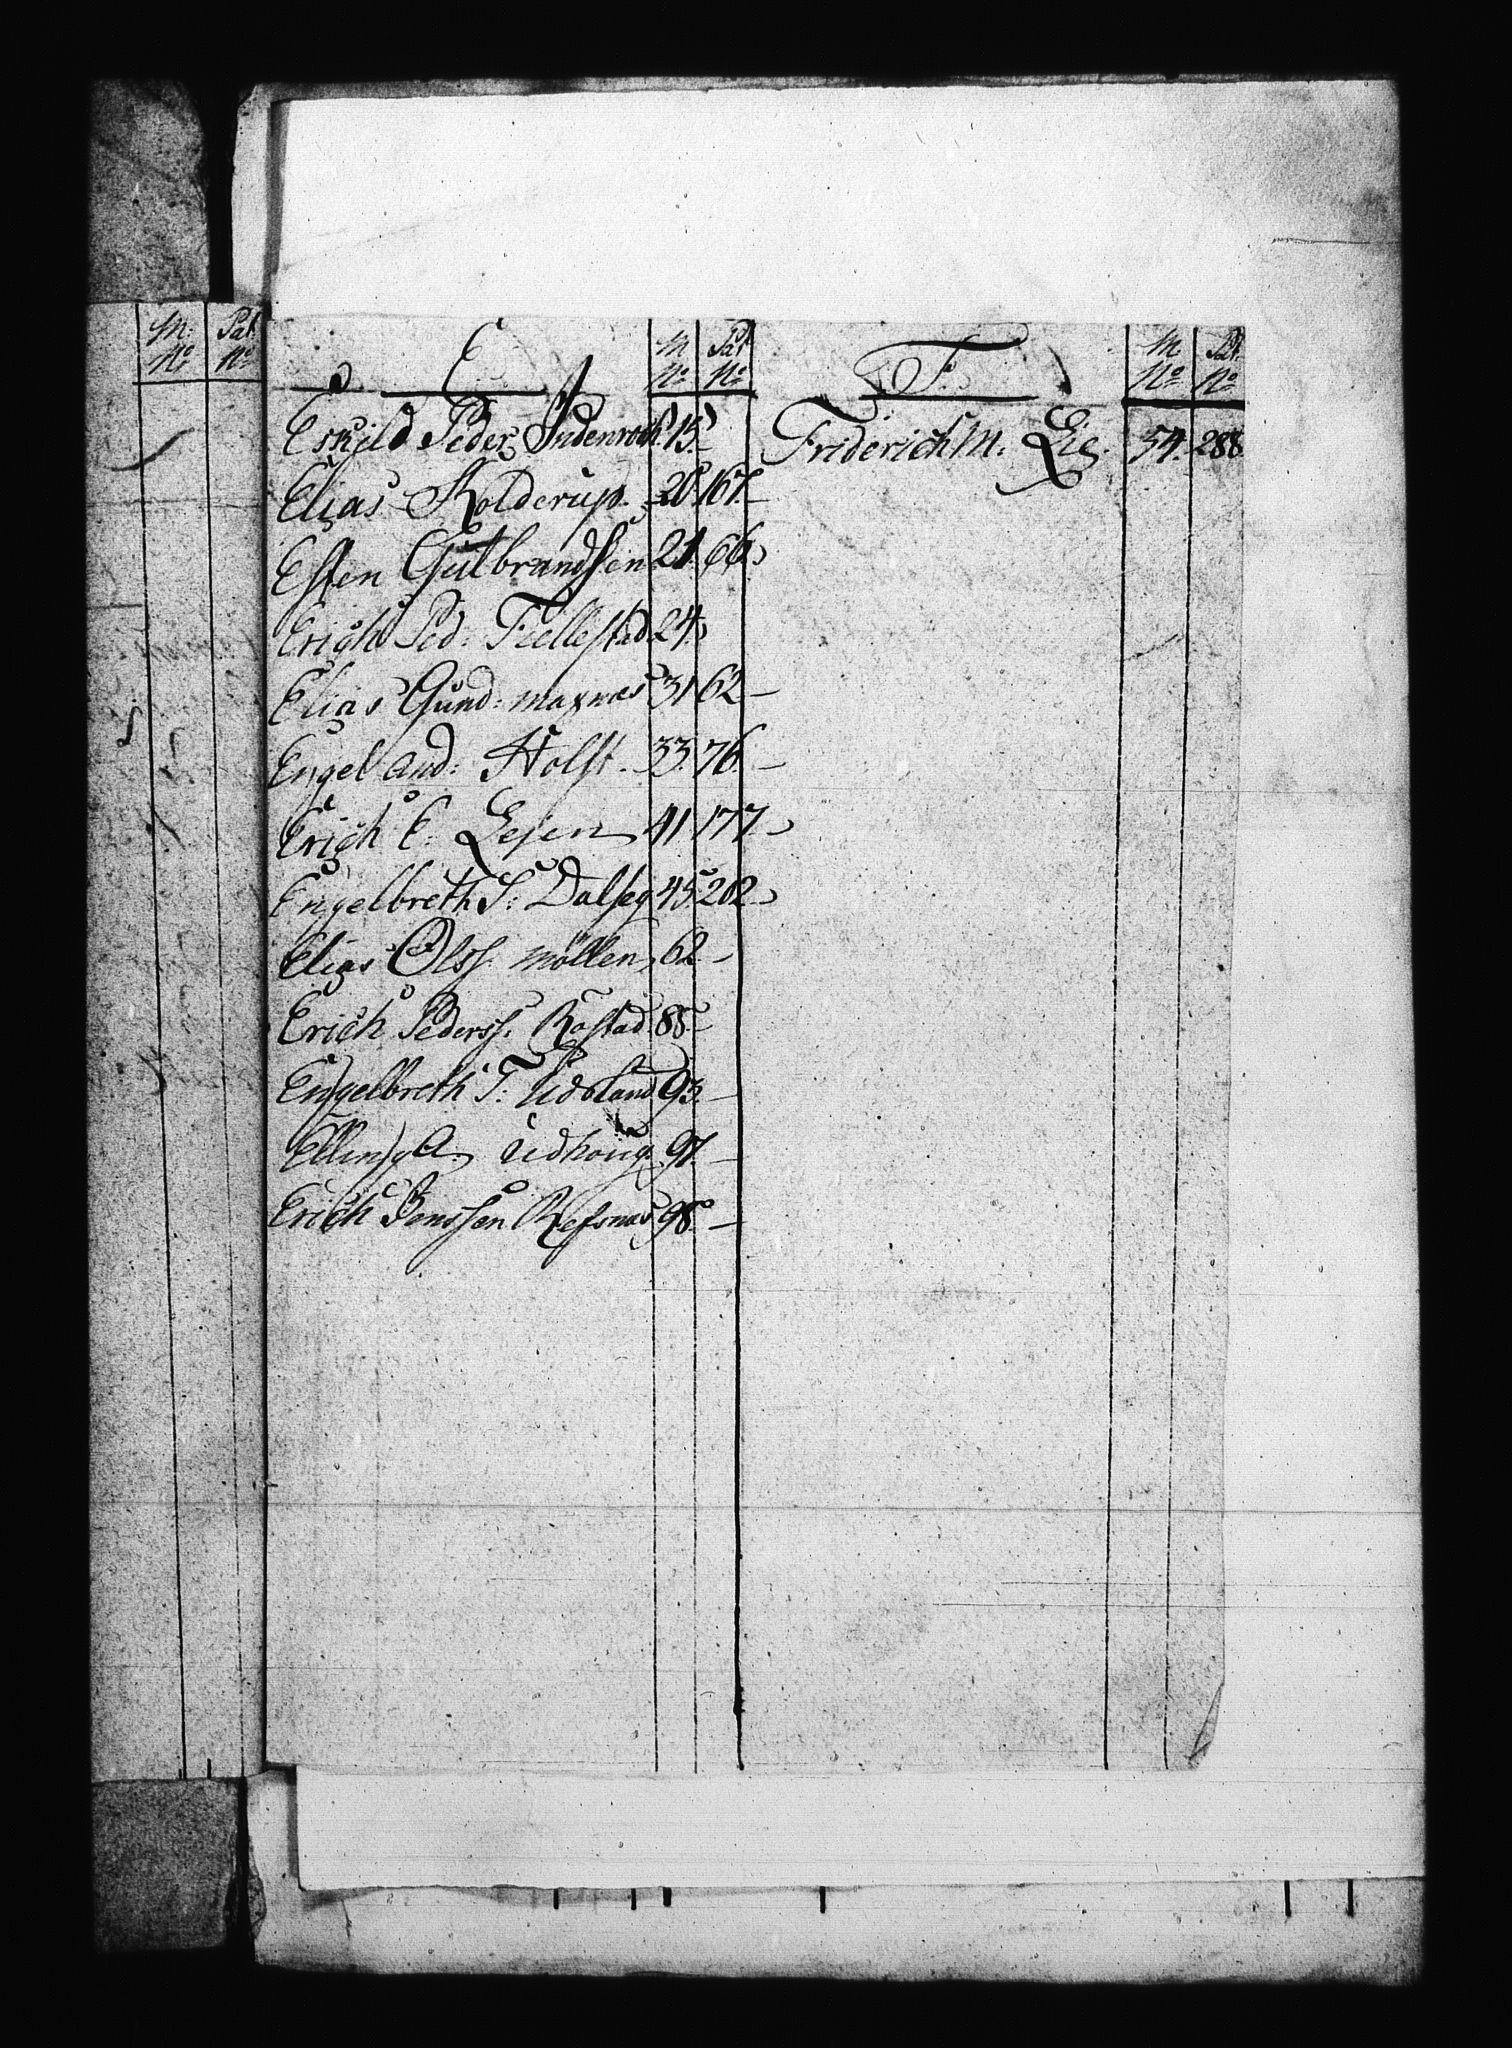 M. Pat.
No No
E. M Pat
No No
Eskild Peder Indenroth 15.
Elias Kolderup. 20. 167.
Esten Gulbrandsen 21. 66.
Erich Ped: Fiellestad 24.
Elias Gund: maxnæs 31 62
Engel And: Holst. 33. 76.
Erich E. Leisen 41. 177.
Engelbreth S: Dalseg 45 202
Elias Olss. möllen 62
Erich Pederss. Rostad. 88.
Engelbreth T: Udoland 93.
Elling A. Udhoug. 97.
Erich Benssen Refsnæs 98.
F. M Pat.
No No
Friderich M. Lie. 54. 288